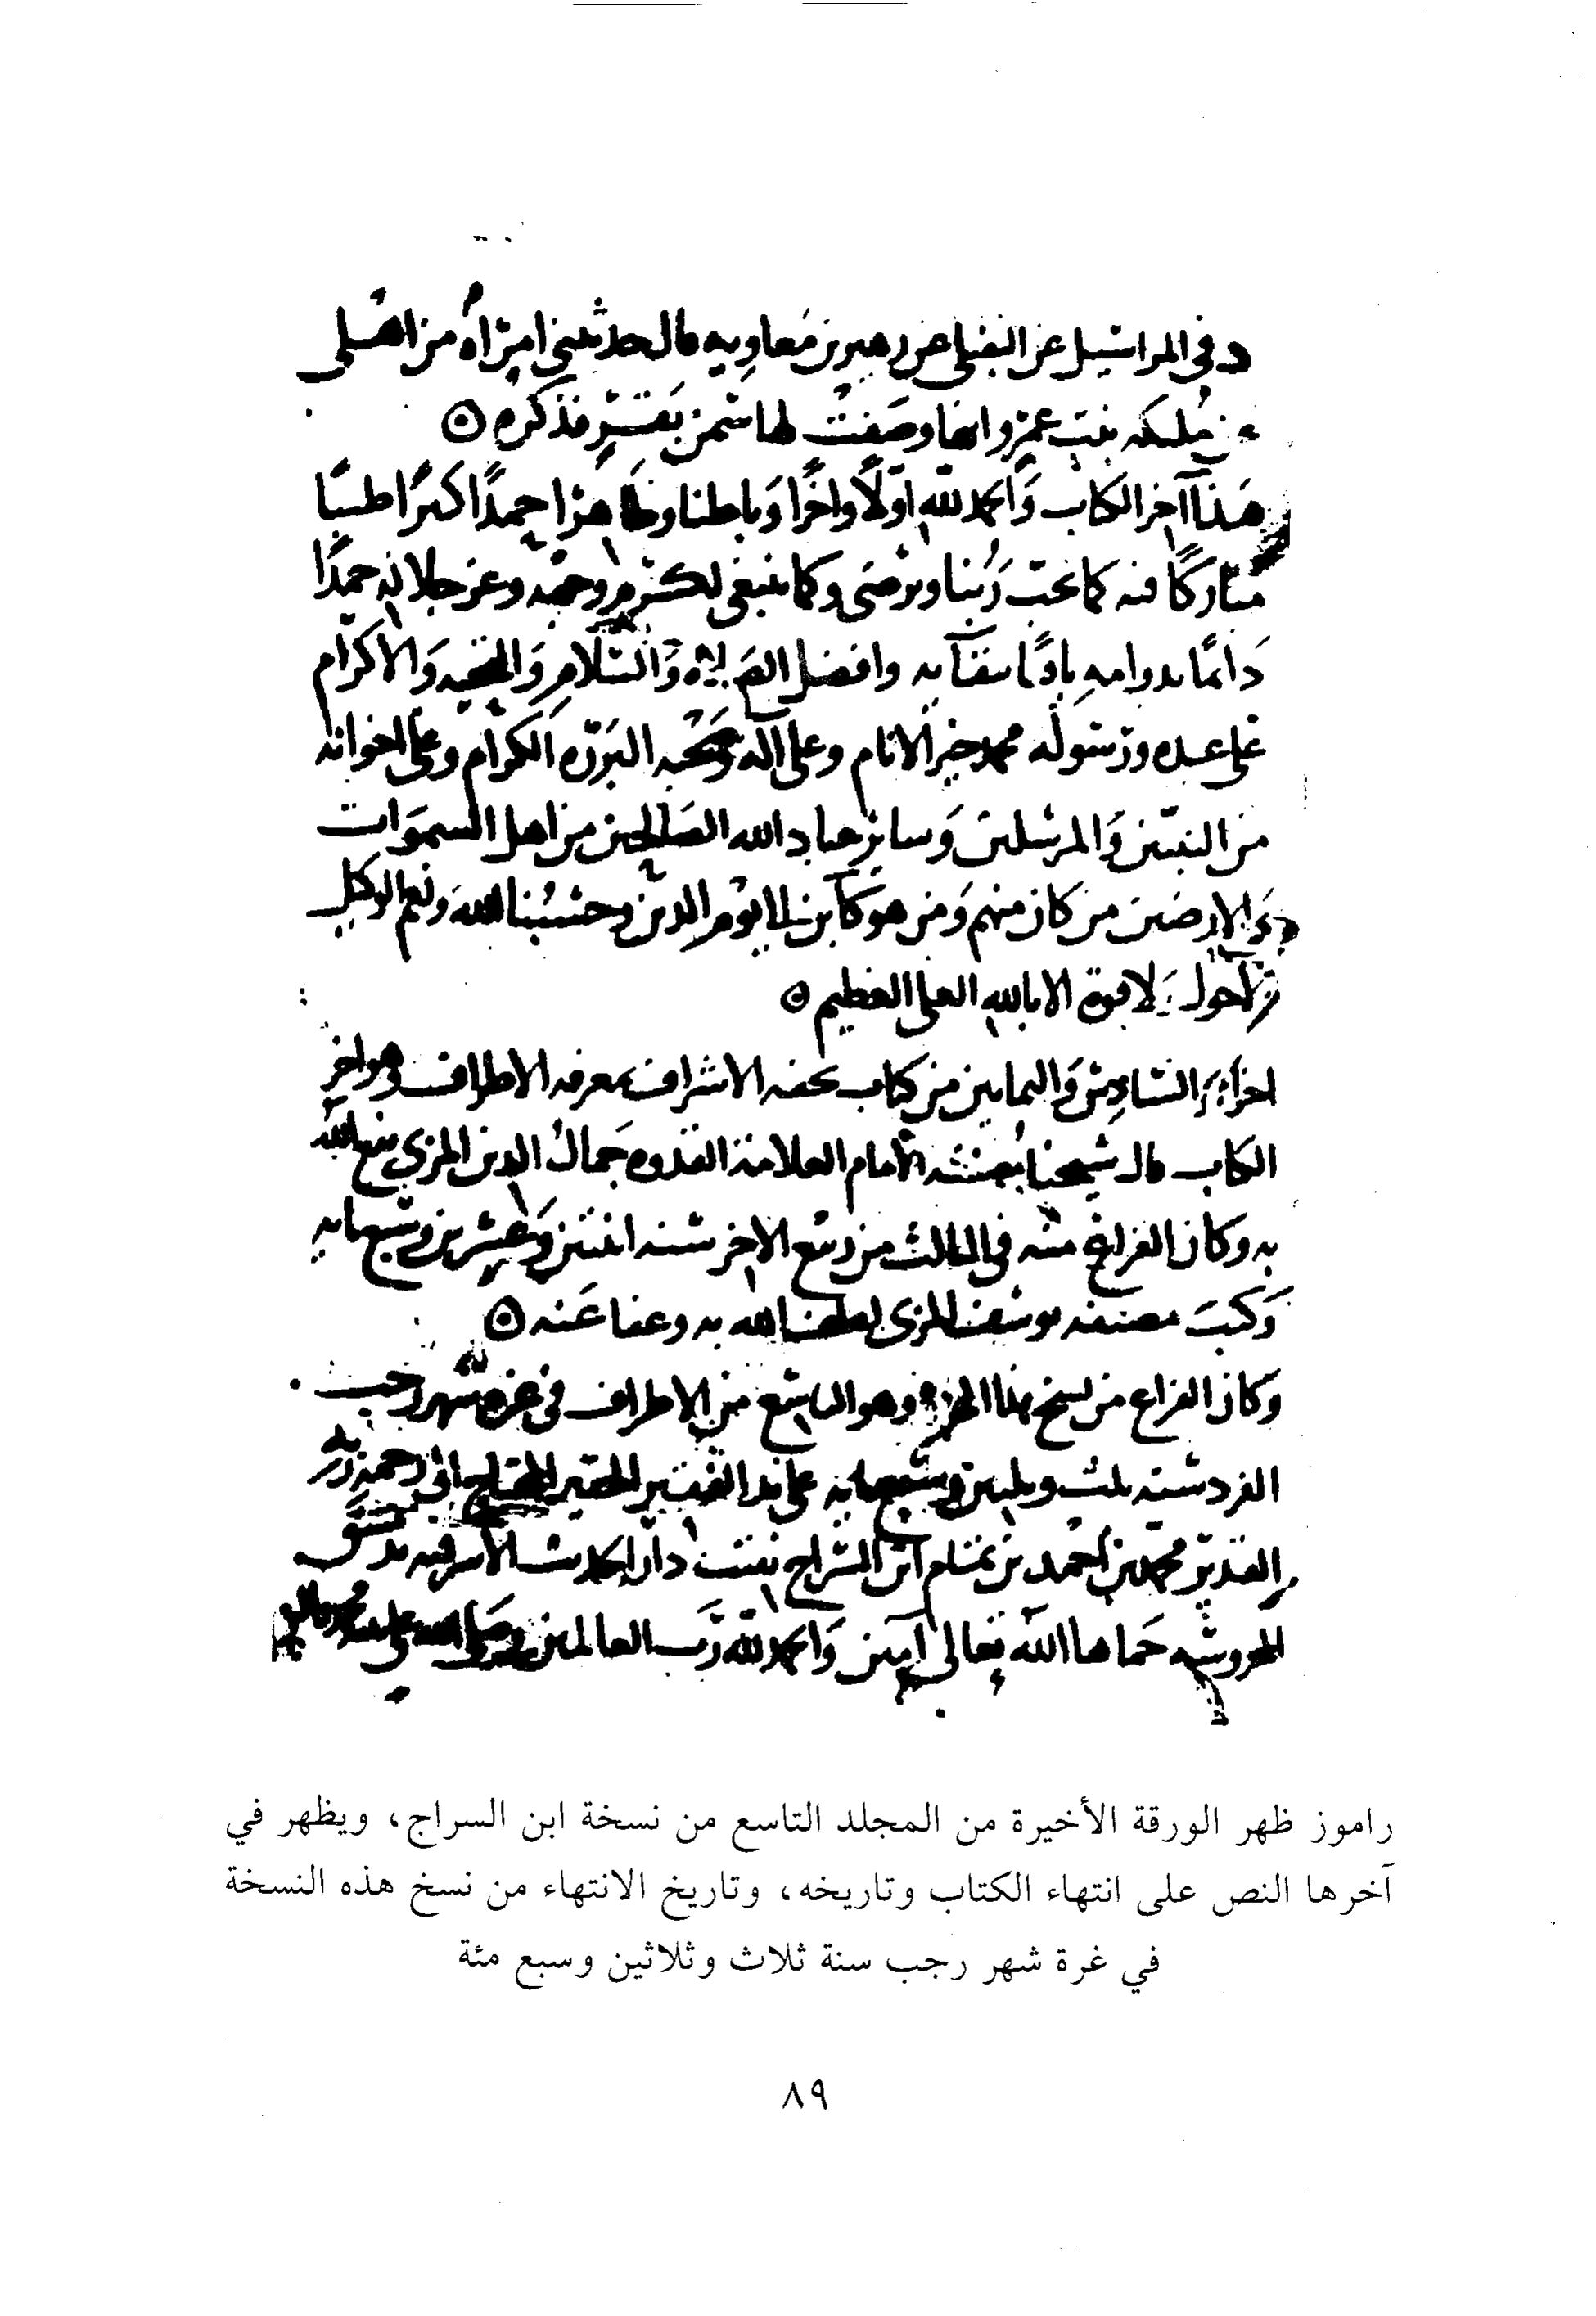 د في المراسيل عن النفيلي عن زهير بن معاويه قال حدثتني امرَاه من اهلي
عن مُليكه بنت عمرو انها وصَفتْ لها سَمن بَقَر فذكره ۝
هَذا آخر الكتاب وَالحمد لله اوّلًا واخرًا وَباطنا وظاهرًا حمدًا كثيرًا طيبًا
مباركًا فيه كما يحب رَبُنا ويرضَى وكما ينبغي لكرم وجهه وعز جلاله حمدًا
دَائمًا بدوامه باقيًا ببقآيه وافضل الصَلاه وَالسَّلام وَالتحيه وَالاكرام
على عبده ورَسُوله محمد خير الانام وعلى آله وصَحْبه البَرَره الكرام وعلى اخوانه
من النبيّين وَالمرسَلين وَساير عباد الله الصَالحين من اهل السموَات
وَالارضين من كان منهم وَمن هو كآين الى يوم الدين وحسْبُنا الله وَنعم الوكيل
ولا حول ولا قوة الا بالله العلي العظيم ۝
اخر الجزء السَّادس وَالثمانين من كتاب تحفه الاشراف بمعرفه الاطراف وهو اخر
الكتاب قال شيخنا مُصنفه الامام العلامة القدوه جَمالُ الدين المزي متع الله
به وكان الفراغ منه في الثالث من ربيع الاخر سَنه اثنتين وَعشرين وسَبع مايه
وَكتبَ مصنفه يوسُف المزي لطف الله به وعفا عَنه ۝
وَكان الفراغ من نسخ هذا الجزء وهو التاسع من الاطراف في غره شهر رجب
الفرد سَنه ثلث وثلثين وسَبعمايه على يد الفقير الحقير المحتاج الى رحمه ربه
القدير محمد بن أحمد بن تمام ابن السَّراج بيت دار الحديث الاشرفيه بدمشق
المحروسَه حَماها الله تعالى آمين وَالحمد لله رَب العالمين وصَلى الله على محمد واله
راموز ظهر الورقة الأخيرة من المجلد التاسع من نسخة ابن السراج، ويظهر في
آخرها النص على انتهاء الكتاب وتاريخه، وتاريخ الانتهاء من نسخ هذه النسخة
في غرة شهر رجب سنة ثلاث وثلاثين وسبع مئة
٨٩